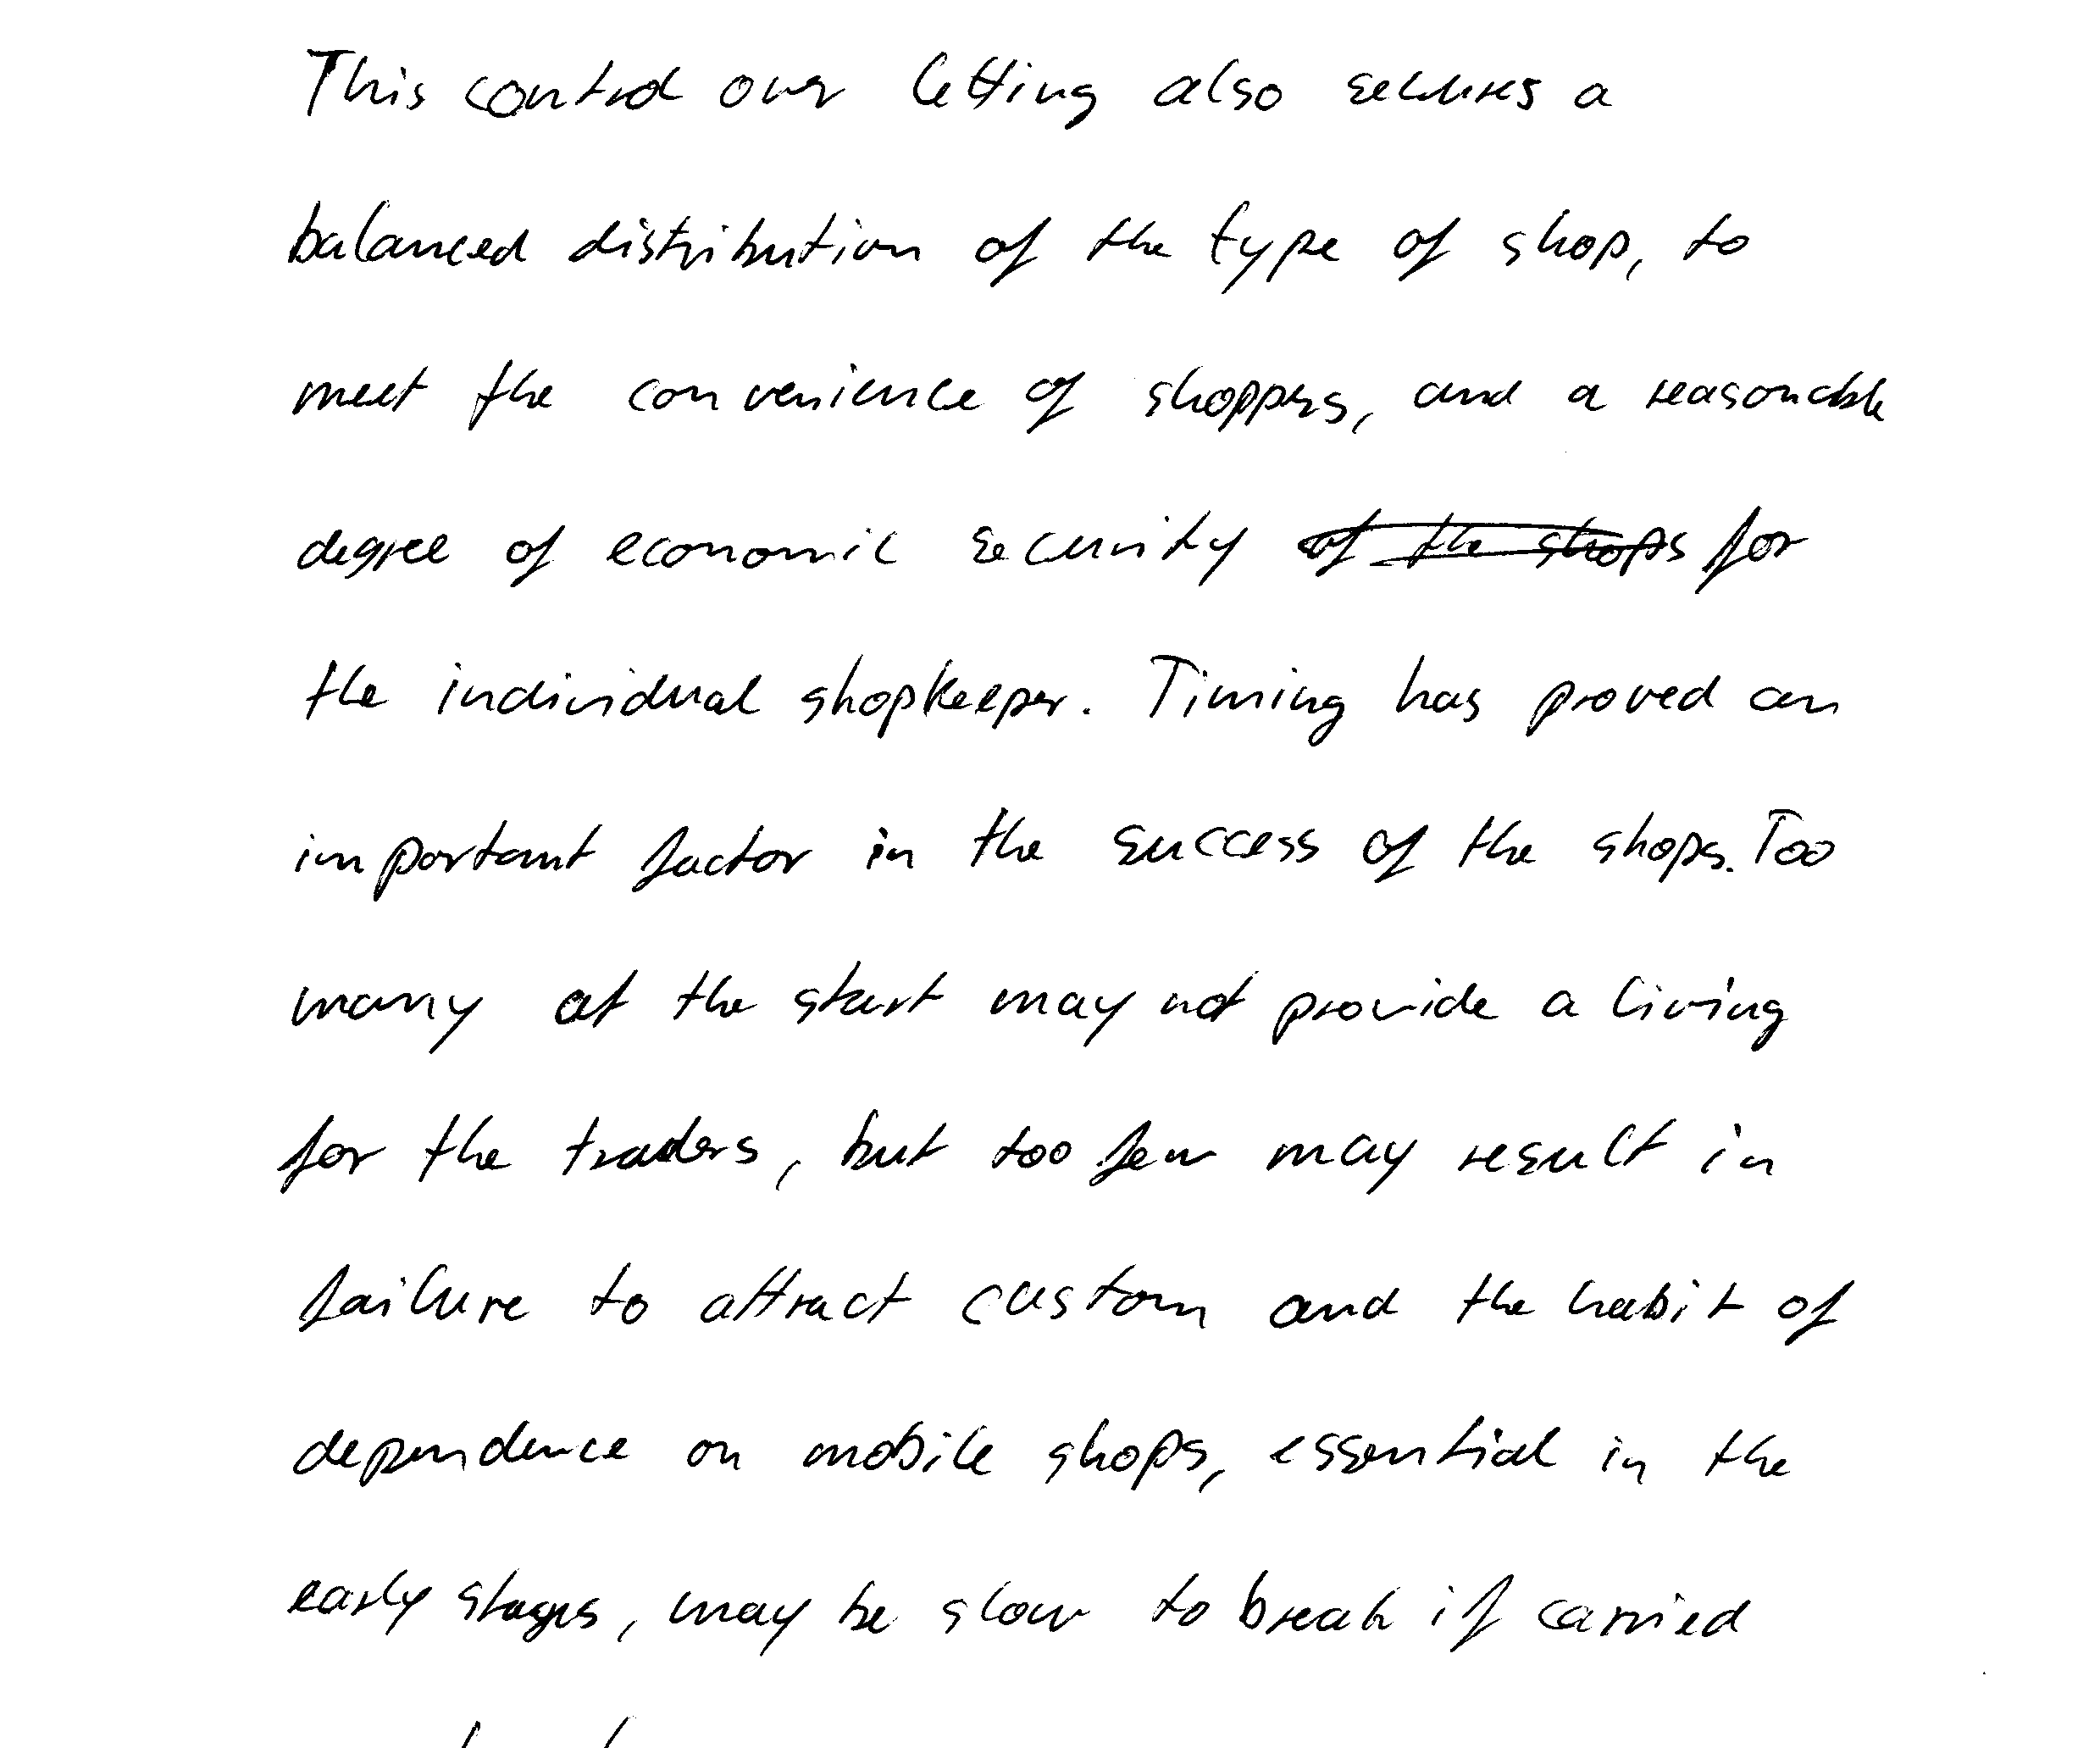 This control over letting also secures a
balanced distribution of the type of shop, to
meet the convenience of shoppers, and a reasonable
degree of economic security of the shops for
the individual shopkeeper. Timing has proved an
important factor in the success of the shops. Too
many at the start may not provide a living
for the traders, but too few may result in
failure to attract custom and the habit of
dependence on mobile shops, essential in the
early stages, may be slow to break if carried